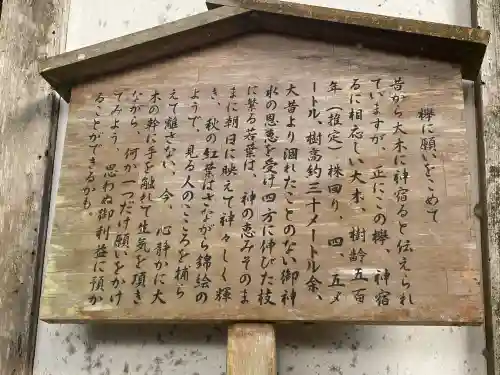 欅に願いをこめて
昔から大木に神宿ると伝えられ
ていますが、正にこの欅、神宿
るに相応しい大木、樹齢五百
年(推定)株回り、四、五メ
ートル、樹高約三十メートル余、
大昔より涸れたことのない御神
水の恩恵を受け四方に伸びた枝
に繁る若葉は、神の恵みそのま
まに朝日に映えて神々しく輝
き、秋の紅葉はさながら錦絵の
ようで、見る人のこころを捕ら
えて離さない、今、心静かに大
木の幹に手を触れて生気を頂き
ながら、何か一つだけ願いをかけ
てみよう、思わぬ御利益に預か
ることができるかも。